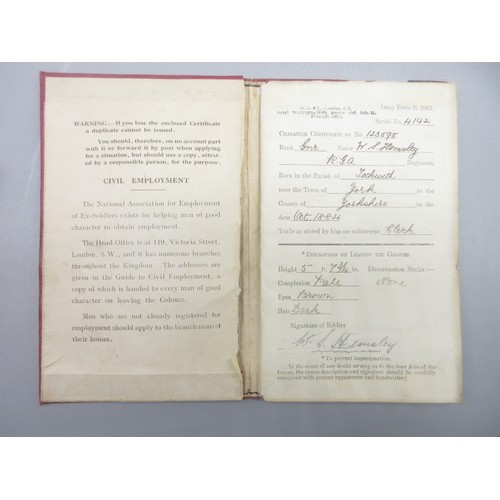 WARNING.—If you lose the enclosed Certificate
a duplicate cannot be issued.
You should, therefore, on no account part
with it or forward it by post when applying
for a situation, but should use a copy, attested
by a responsible person, for the purpose.
CIVIL EMPLOYMENT
The National Association for Employment
of Ex-Soldiers exists for helping men of good
character to obtain employment.
The Head Office is at 119, Victoria Street,
London, S.W., and it has numerous branches
throughout the Kingdom. The addresses are
given in the Guide to Civil Employment, a
copy of which is handed to every man of good
character on leaving the Colours.
Men who are not already registered for
employment should apply to the branch nearest
their homes.
Army Form B. 2067.
Serial No. 4142
CHARACTER CERTIFICATE OF No. 123595
Rank Gnr Name W S Hemsley
RGA Regiment.
Born in the Parish of Tockwith
near the Town of York in the
County of Yorkshire on the
date Oct 1884
Trade as stated by him on enlistment Clerk
*DESCRIPTION ON LEAVING THE COLOURS.
Height 5 ft. 7¼ in. Identification Marks:—
Complexion Pale None
Eyes Brown
Hair Dark
Signature of Soldier
W. S. Hemsley
*To prevent impersonation.
In the event of any doubt arising as to the bona fides of the
bearer, the above description and signature should be carefully
compared with present appearance and handwriting.